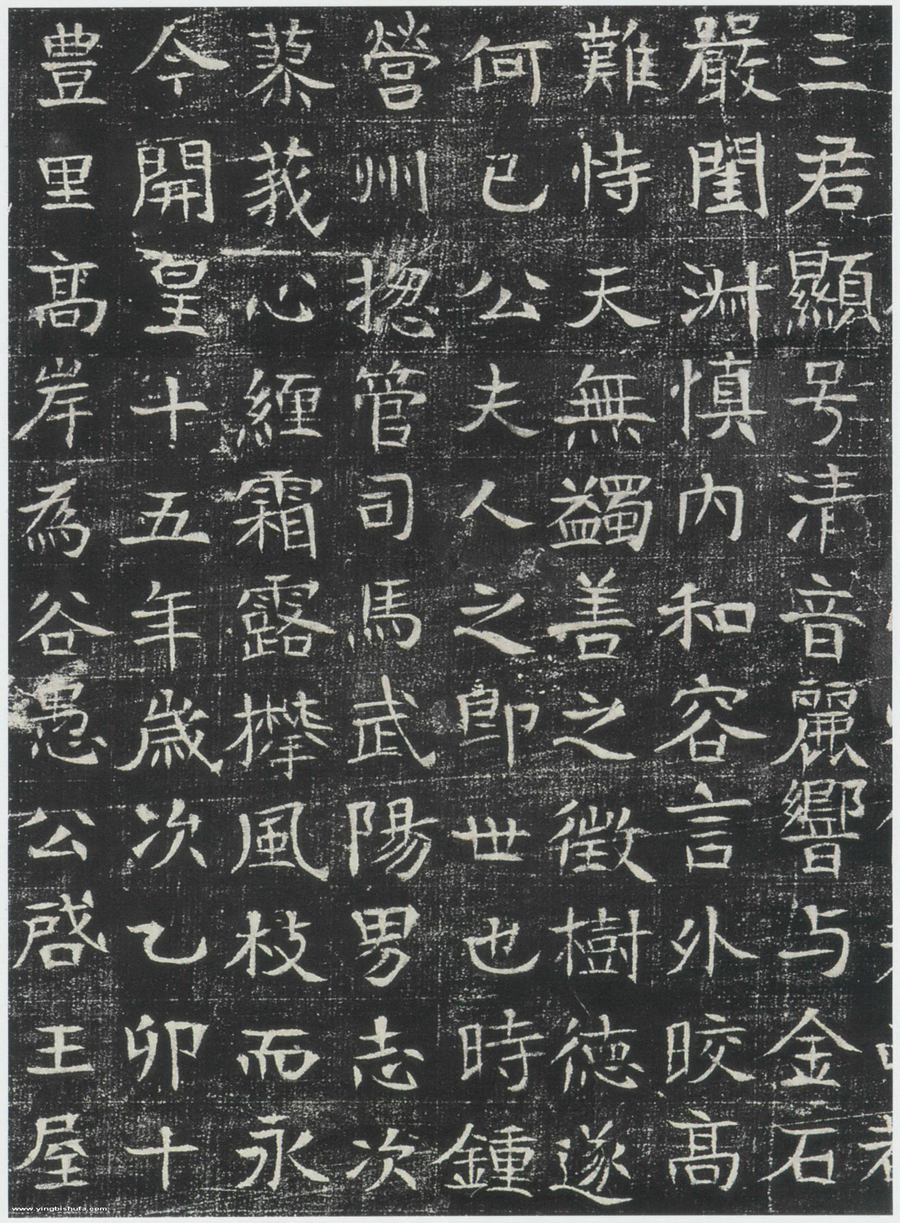 三君顯号清音麗響与金石
嚴閨渊慎內和容言外晈髙
難恃天無蠲善之徵樹徳遂
何已公夫人之即世也時鍾
營州揔管司馬武陽男志次
蓼莪心纒霜露攀風枝而永
今開皇十五年歳次乙卯十
豊里髙岸為谷愚公啓王屋
www.yingbishufa.com